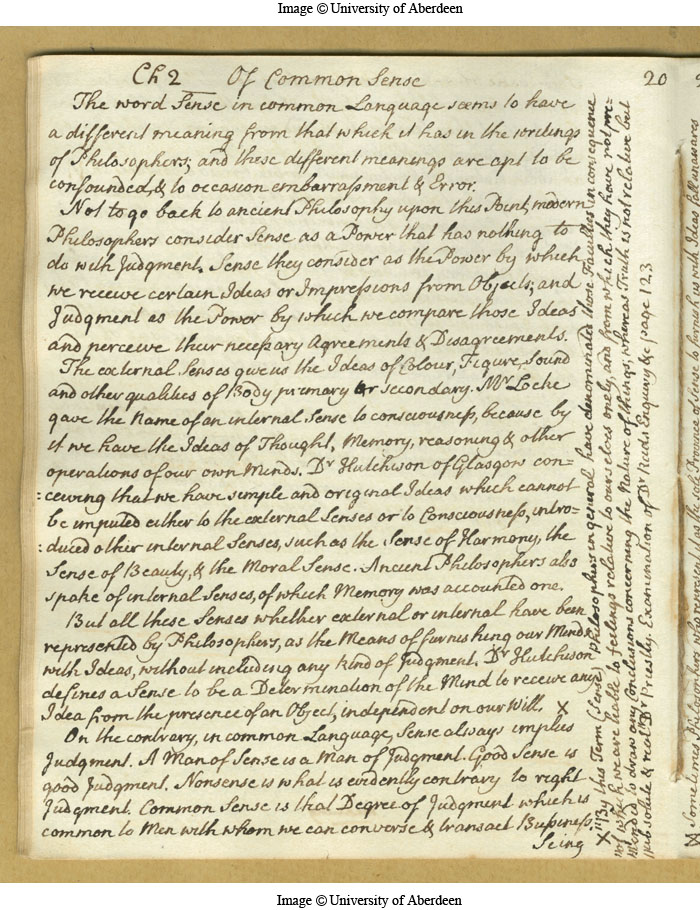 Image © University of Aberdeen
Ch 2 Of Common Sense 20
The word Sense in common Language seems to have
a different meaning from that which it has in the writings
of Philosophers; and these different meanings are apt to be
confounded, & to occasion embarrassment & Error.
Not to go back to ancient Philosophy upon this Point, modern
Philosophers consider Sense as a Power that has nothing to
do with Judgment. Sense they consider as the Power by which
we receive certain Ideas or Impressions from Objects; and
Judgment as the Power by which we compare those Ideas
and perceive their necessary Agreements & Disagreements.
The external Senses give us the Ideas of Colour, Figure, Sound
and other qualities of Body primary or secondary. Mr Locke
gave the Name of an internal Sense to consciousness, because by
it we have the Ideas of Thought, Memory, reasoning & other
operations of our own Minds. Dr Hutchison of Glasgow con=
:ceiving that we have simple and original Ideas which cannot
be imputed either to the external Senses or to Consciousness, intro=
:duced other internal Senses, such as the Sense of Harmony, the
Sense of Beauty, & the Moral Sense. Ancient Philosophers also
spake of internal Senses, of which Memory was accounted one.
But all these Senses whether external or internal have been
represented by Philosophers, as the Means of furnishing our Minds
with Ideas, without including any kind of Judgment. Dr Hutchison
defines a Sense to be a Determination of the Mind to receive any
Idea from the presence of an Object, independent on our Will. X
On the contrary, in common Language, Sense always implies
Judgment. A Man of Sense is a Man of Judgment. Good Sense is
good Judgment. Nonsense is what is evidently contrary to right
Judgment. Common Sense is that Degree of Judgment which is
common to Men with whom we can converse & transact Business.
Seing
X "By this Term (Sense) Philosophers in general have denominated those Faculties in consequence
"of which we are liable to feelings relative to ourselves onely, and from which they have not pre=
"tended to draw any Conclusions concerning the Nature of things; whereas Truth is not relative but
"absolute & real Dr Priestly. Examination of Dr Reids Enquiry &c page 123
Sometimes Philosophers
Image © University of Aberdeen